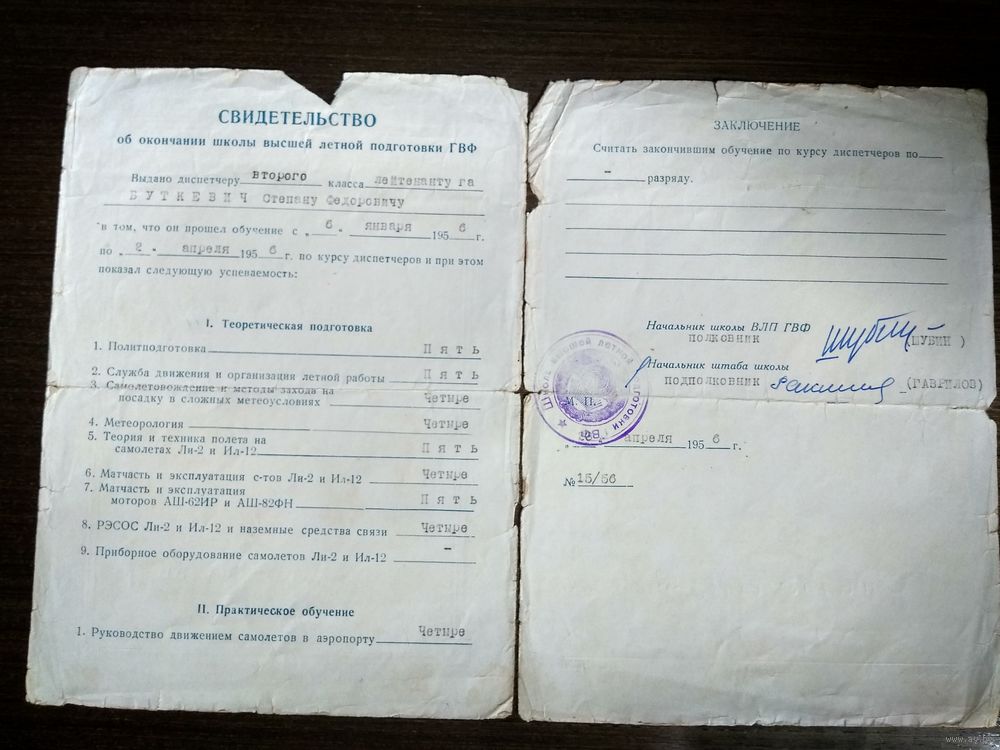 СВИДЕТЕЛЬСТВО
об окончании школы высшей летной подготовки ГВФ
Выдано диспетчеру второго класса лейтенанту га
БУТКЕВИЧ Степану Федоровичу
в том, что он прошел обучение с „ 6 " января 1956 г.
по „ 2 " апреля 1956 г. по курсу диспетчеров и при этом
показал следующую успеваемость:
I. Теоретическая подготовка
1. Политподготовка Пять
2. Служба движения и организация летной работы Пять
3. Самолетовождение и методы захода на
посадку в сложных метеоусловиях Четыре
4. Метеорология Четыре
5. Теория и техника полета на
самолетах Ли-2 и Ил-12 Пять
6. Матчасть и эксплуатация с-тов Ли-2 и Ил-12 Четыре
7. Матчасть и эксплуатация
моторов АШ-62ИР и АШ-82ФН Пять
8. РЭСОС Ли-2 и Ил-12 и наземные средства связи Четыре
9. Приборное оборудование самолетов Ли-2 и Ил-12 -
II. Практическое обучение
1. Руководство движением самолетов в аэропорту Четыре
ЗАКЛЮЧЕНИЕ
Считать закончившим обучение по курсу диспетчеров по
- разряду.
Начальник школы ВЛП ГВФ
ПОЛКОВНИК (ШУБИН)
Начальник штаба школы
ПОДПОЛКОВНИК (ГАВРИЛОВ)
М. П.
апреля 1956 г.
№ 15/56